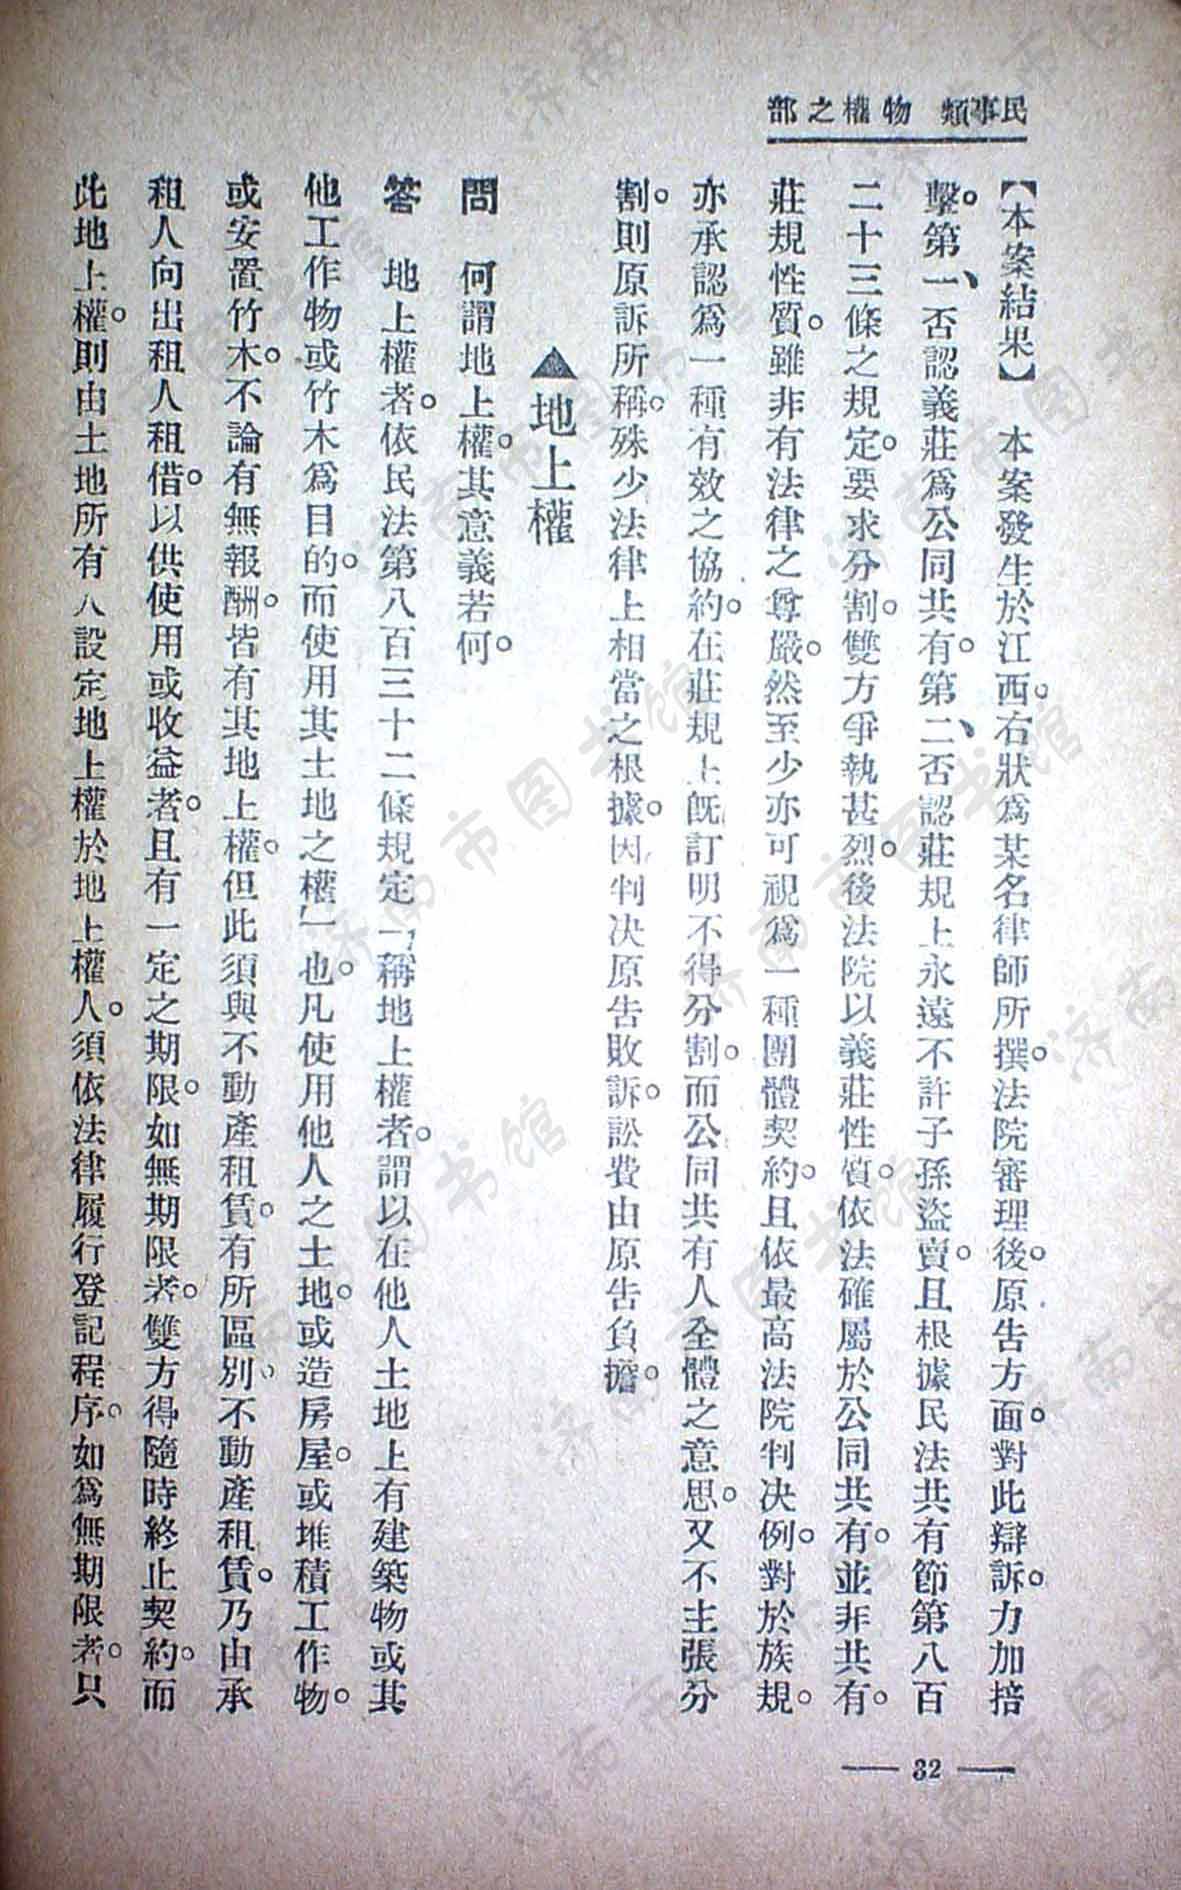 民事類　物權之部
【本案結果】　本案發生於江西。右狀爲某名律師所撰。法院審理後。原告方面。對此辯訴。力加掊
擊。第一、否認義莊爲公同共有。第二、否認莊規上永遠不許子孫盜賣。且根據民法共有節第八百
二十三條之規定。要求分割。雙方爭執甚烈。後法院以義莊性質。依法確屬於公同共有。並非共有。
莊規性質。雖非有法律之尊嚴。然至少亦可視爲一種團體契約。且依最高法院判决例。對於族規。
亦承認爲一種有效之協約。在莊規上既訂明不得分割。而公同共有人全體之意思。又不主張分
割。則原訴所稱。殊少法律上相當之根據。因判决原告敗訴。訟費由原告負擔。
▲地上權
問　何謂地上權。其意義若何。
答　地上權者。依民法第八百三十二條規定「稱地上權者。謂以在他人土地上有建築物或其
他工作物或竹木爲目的。而使用其土地之權」也。凡使用他人之土地。或造房屋。或堆積工作物。
或安置竹木。不論有無報酬。皆有其地上權。但此須與不動產租賃。有所區別、不動產租賃。乃由承
租人向出租人租借。以供使用或收益者。且有一定之期限。如無期限者。雙方得隨時終止契約。而
此地上權。則由土地所有人設定地上權於地上權人。須依法律履行登記程序。如爲無期限者。只
— 32 —
济南市图书馆